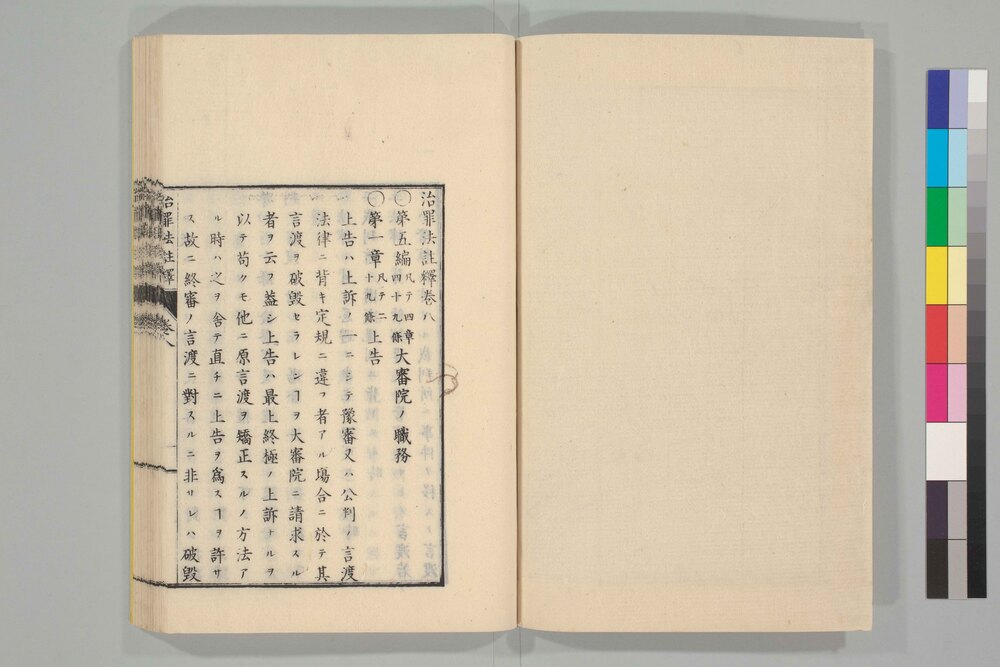 治罪法註釋卷八
〇第五編 凡テ四章四十九條 大審院ノ職務
〇第一章 凡テ二十九條 上告
上告ハ上訴ノ一ニシテ豫審又ハ公判ノ言渡
法律ニ背キ定規ニ違フ者アル塲合ニ於テ其
言渡ヲ破毀セラレンヿヲ大審院ニ請求スル
者ヲ云フ蓋シ上告ハ最上終極ノ上訴ナルヲ
以テ苟クモ他ニ原言渡ヲ矯正スルノ方法ア
ル時ハ之ヲ舍テ直チニ上告ヲ爲スヿヲ許サ
ス故ニ終審ノ言渡ニ對スルニ非サレハ破毀
治罪法註釋 卷八